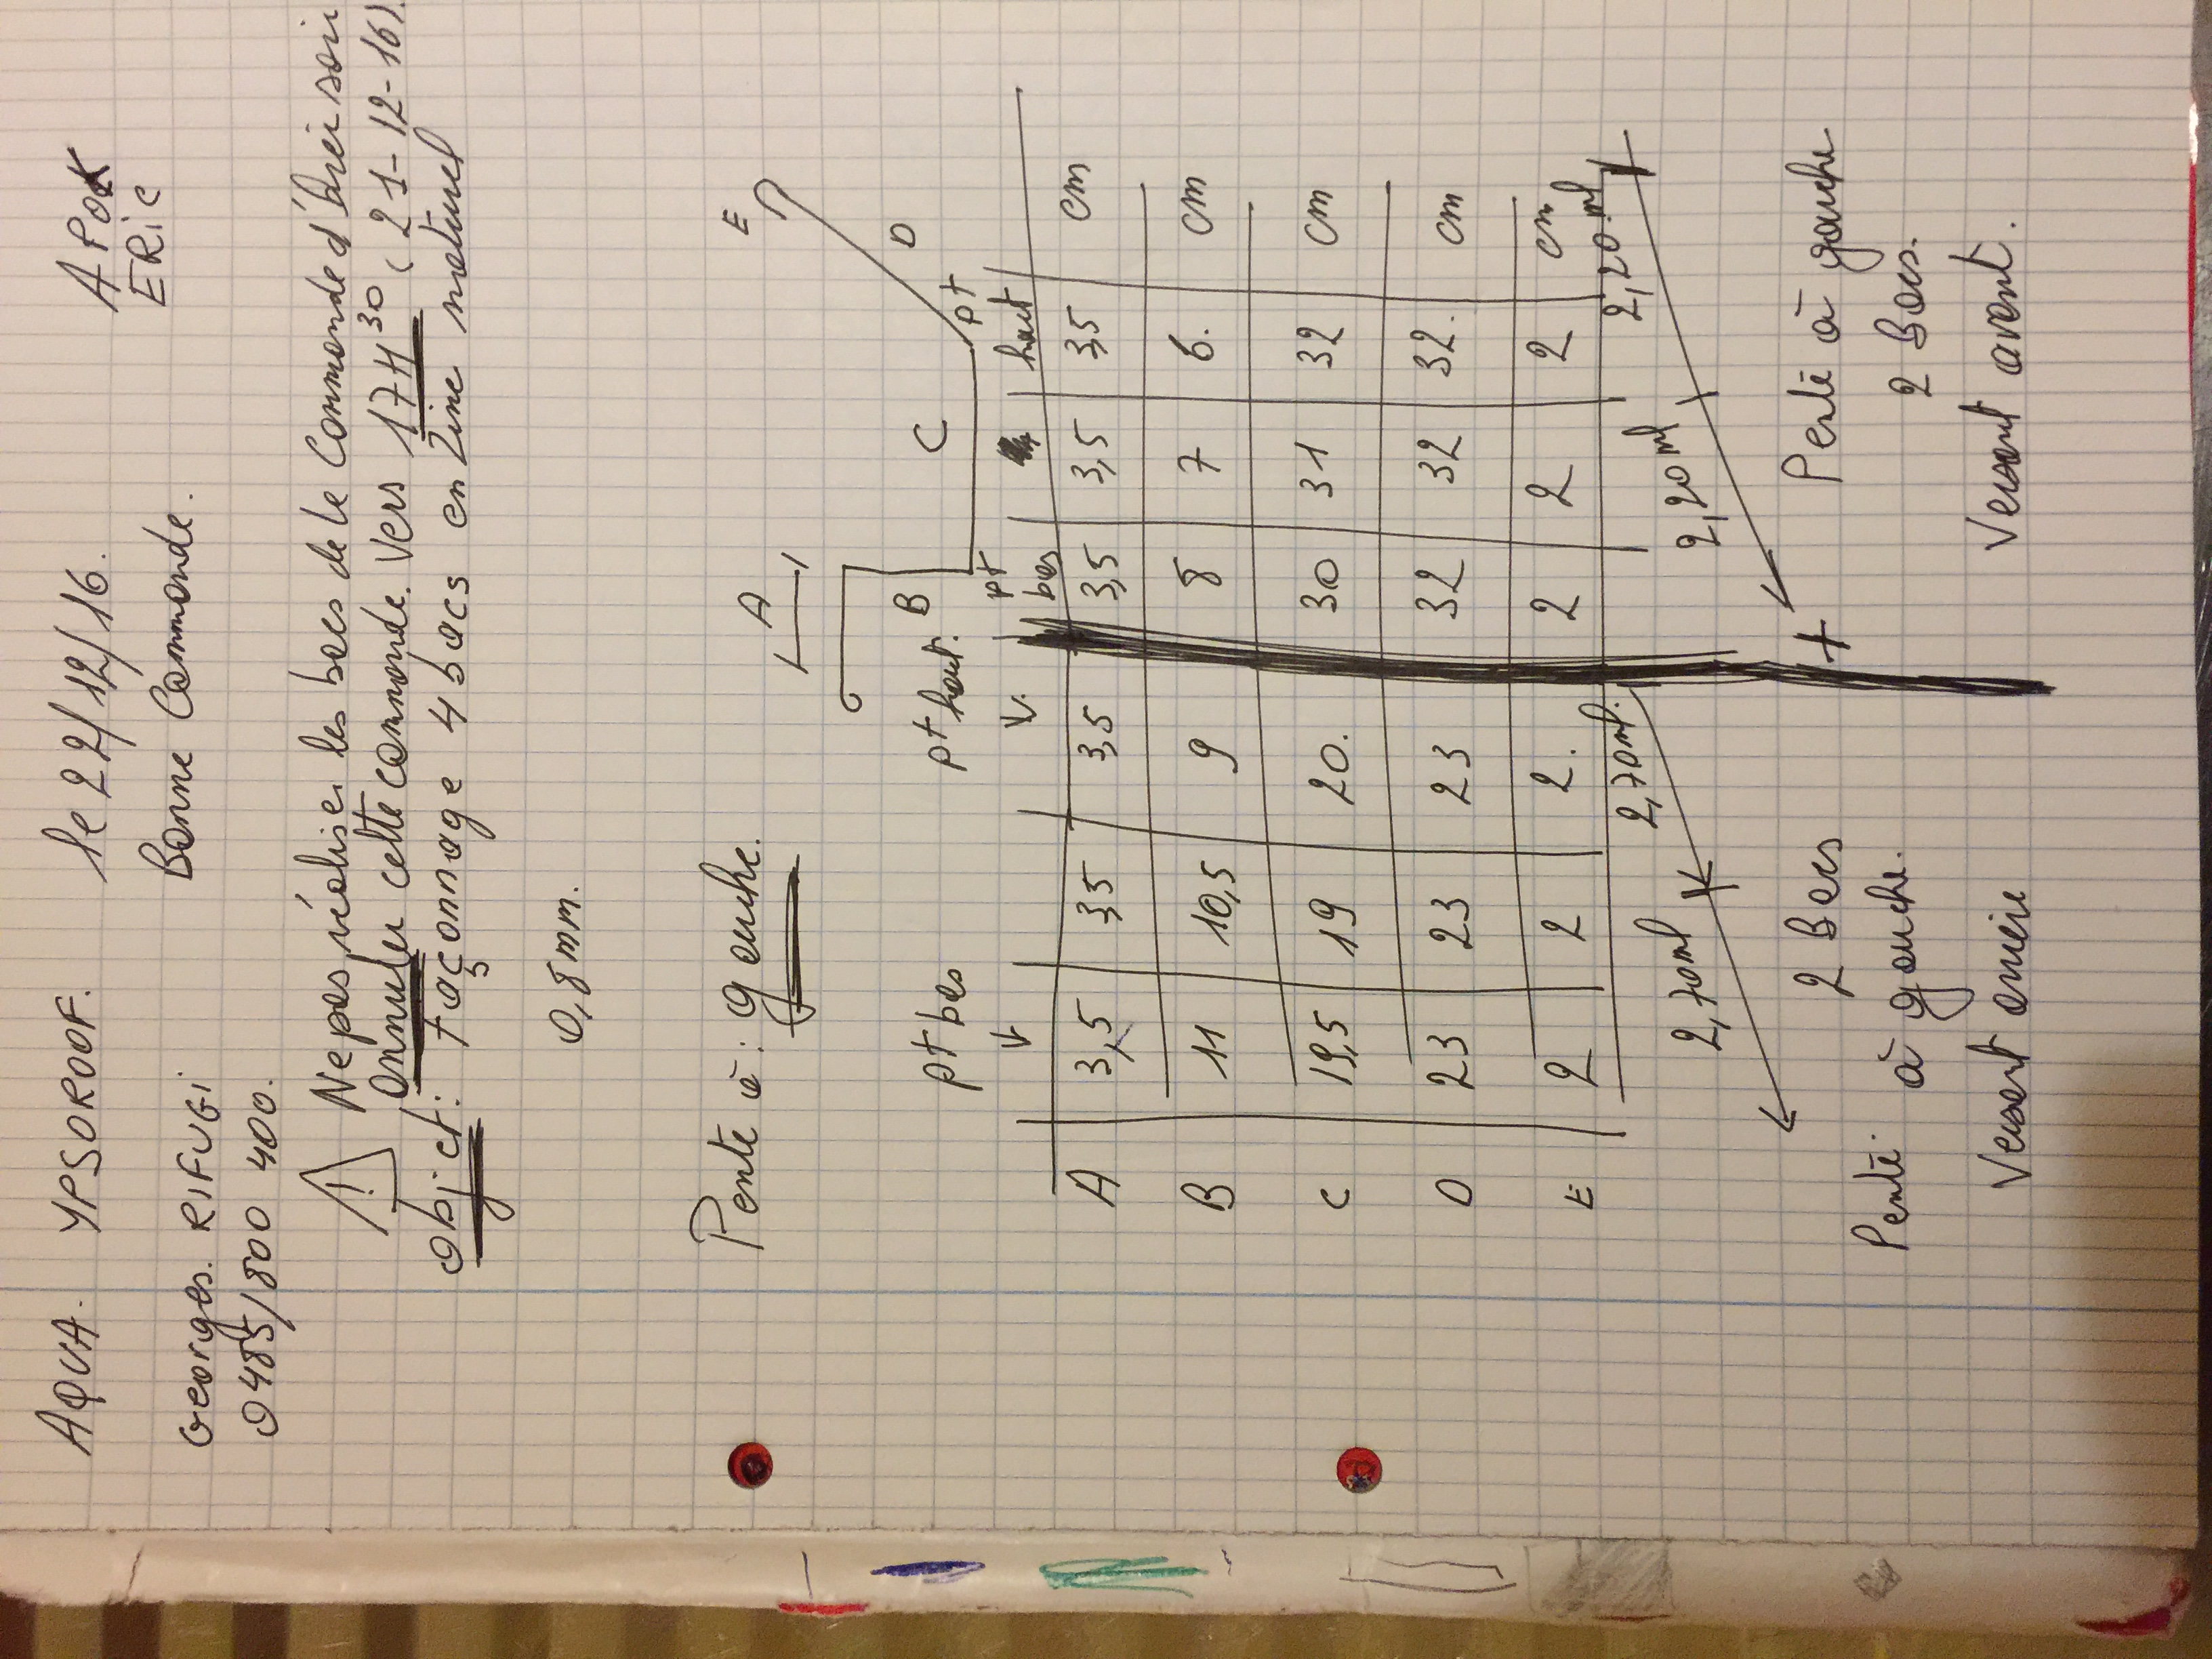 AQUA. YPSOROOF. le 22/12/16. A POK
ERIC
Georges. RIFUGI Bonne Commande.
0485/800 400.
! Ne pas réaliser les bacs de le Commande d'hier soir
annuler cette commande. Vers 17H30 (21-12-16).
objet: façonnage 4 bacs en Zinc naturel
0,8mm.
Pente à: gauche.
A
B
C
D
E
pt bas pt haut. pt bas pt haut
A 3,5 3,5 3,5 3,5 3,5 3,5 cm
B 11 10,5 9 8 7 6. cm
C 19,5 19 20. 30 31 32 cm
D 23 23 23 32 32 32. cm
E 2 2 2. 2 2 2 cm
2,70ml 2,70ml. 2,20ml 2,20ml
+
2 Bacs
Pente à gauche.
Versant arrière
Pente à gauche
2 Bacs.
Versant avant.